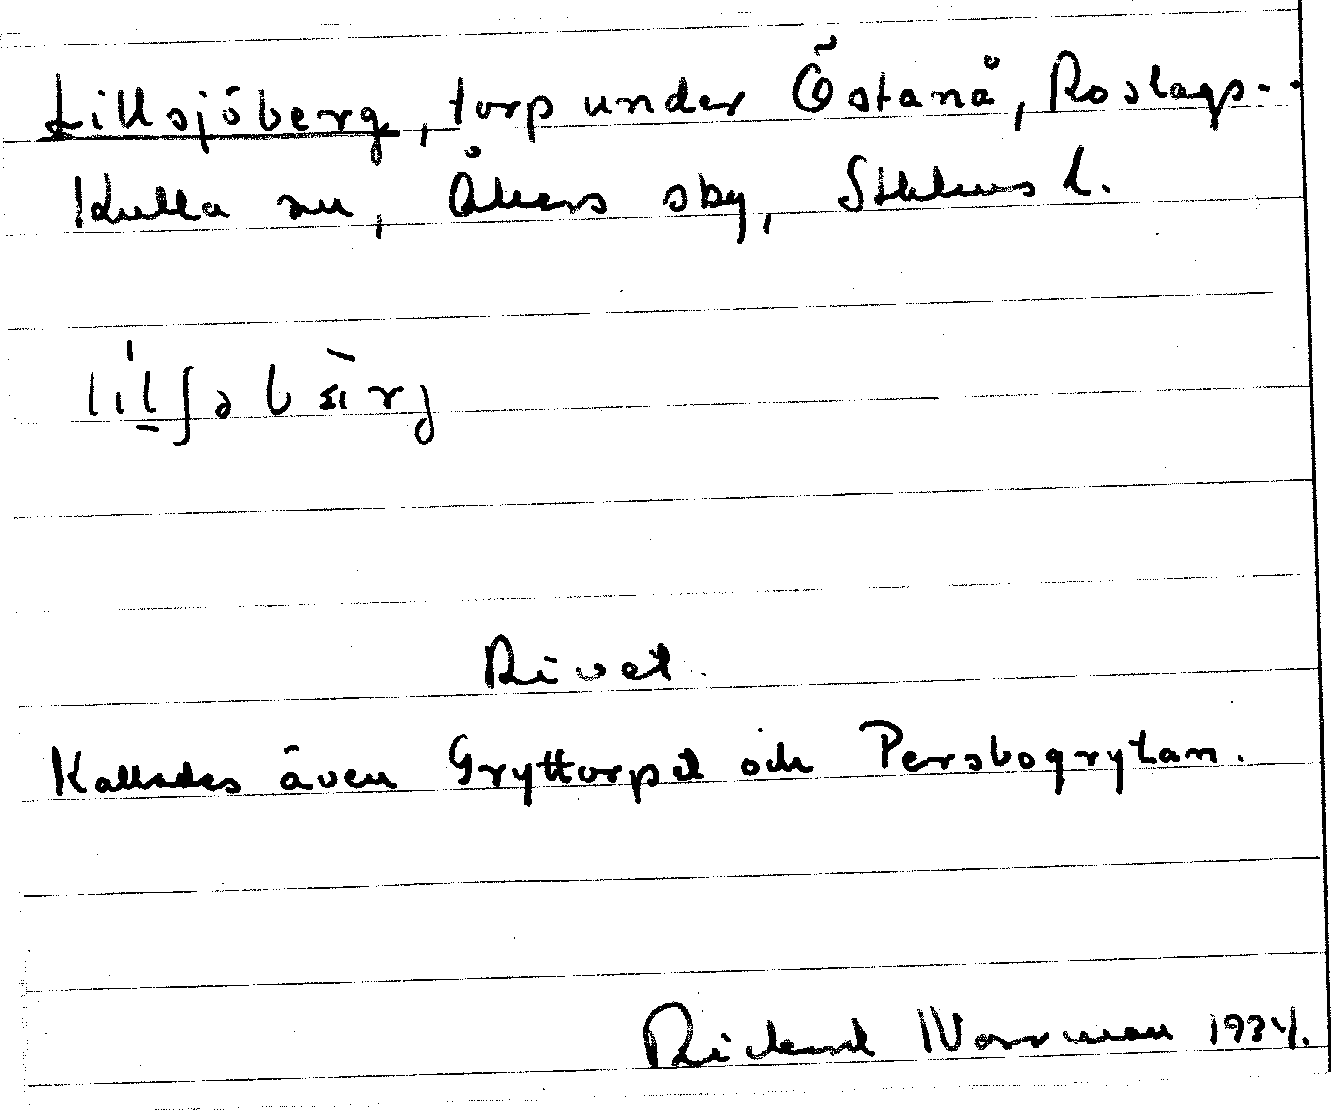 Lillsjöberg, torp under Östanå, Roslags-
Kulla sn, Åkers sby, Sthlms l.
lilʃəbärg
Rivet.
Kallades även Gryttorpet och Persbogrytan.
Rickard Norrman 1934.